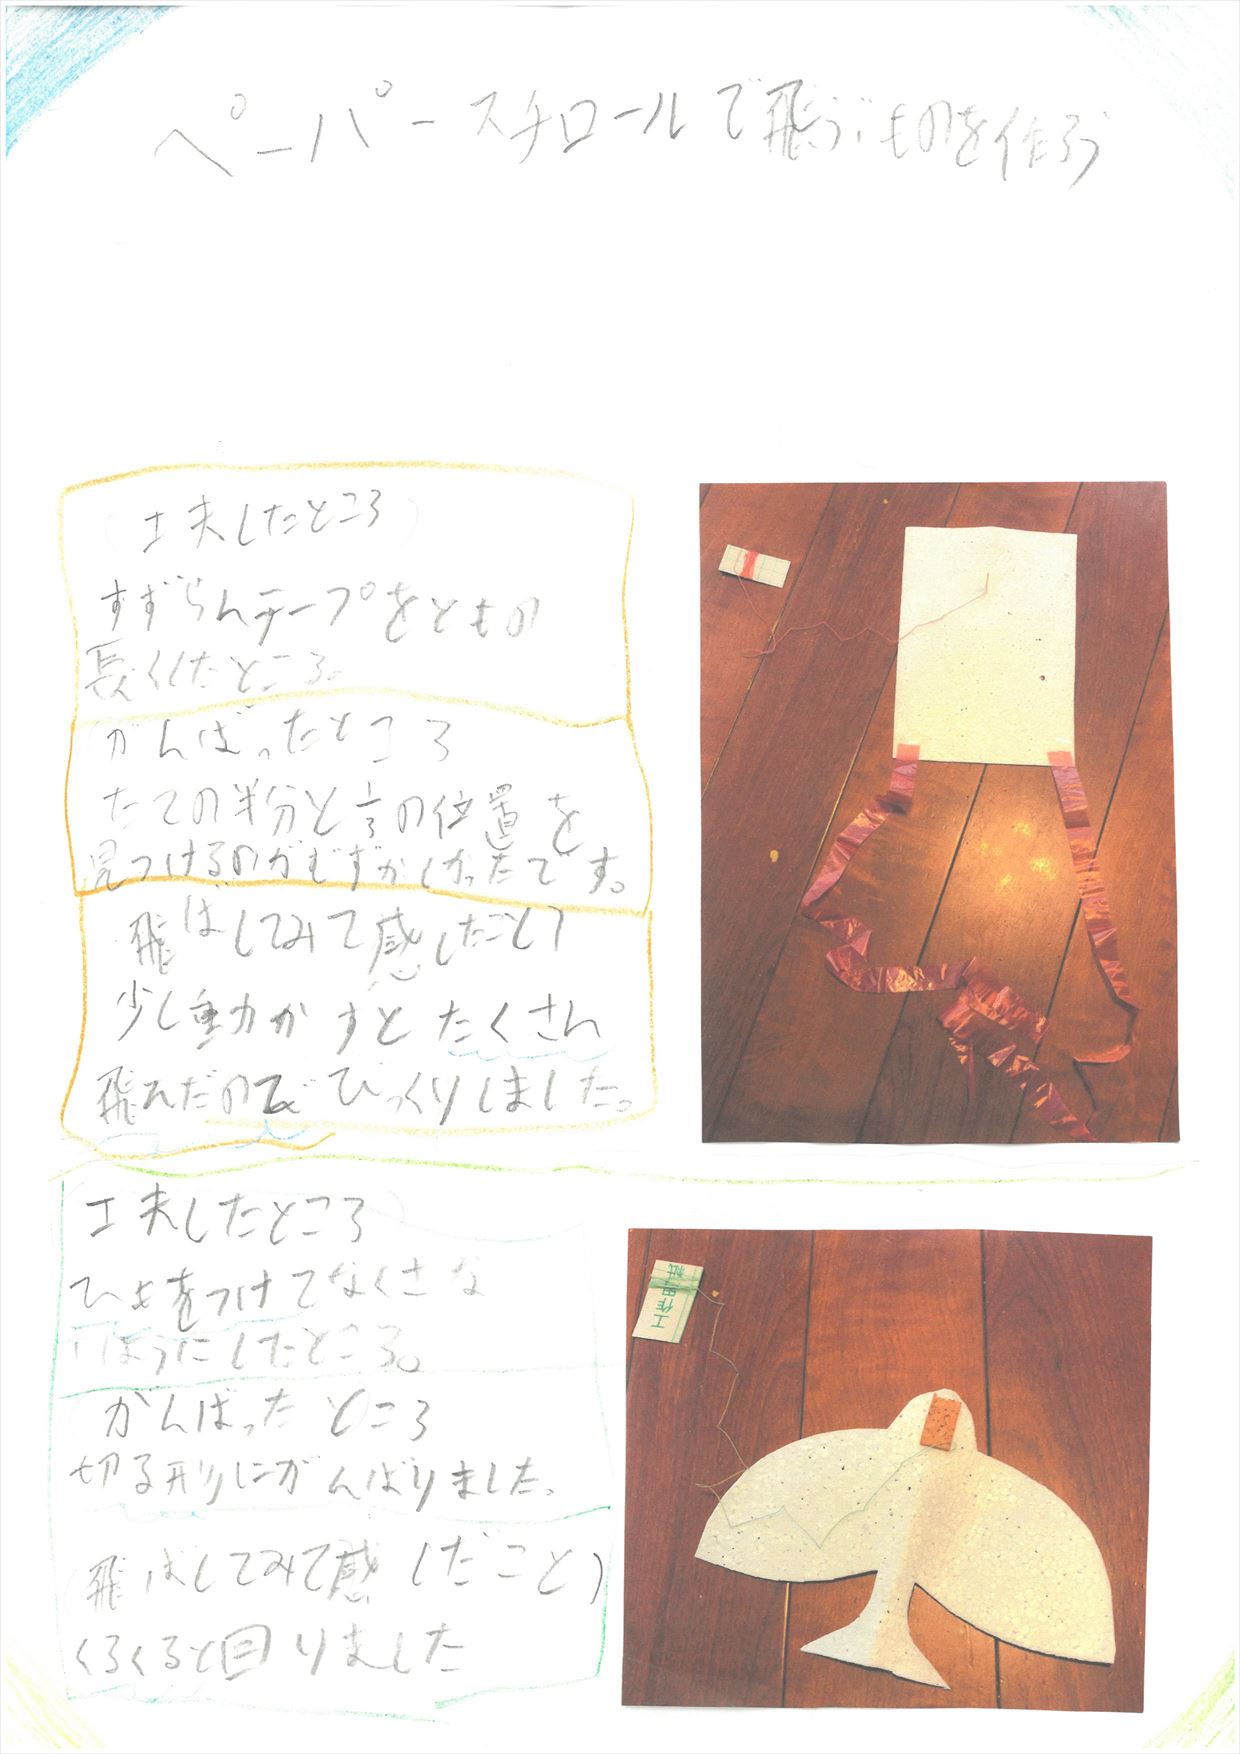 ペーパースチロールで飛ぶものを作ろう
(工夫したところ)
すずらんテープをともの
長くしたところ。
がんばったところ
たての半分と1/3の位置を
見つけるのがむずかしかったです。
飛ばしてみて感じたこと
少し動かすとたくさん
飛んだのでびっくりしました。
工夫したところ
ひもをつけてなくさな
いようにしたところ。
がんばったところ
切る形にがんばりました。
(飛ばしてみて感じたこと)
くるくると回りました